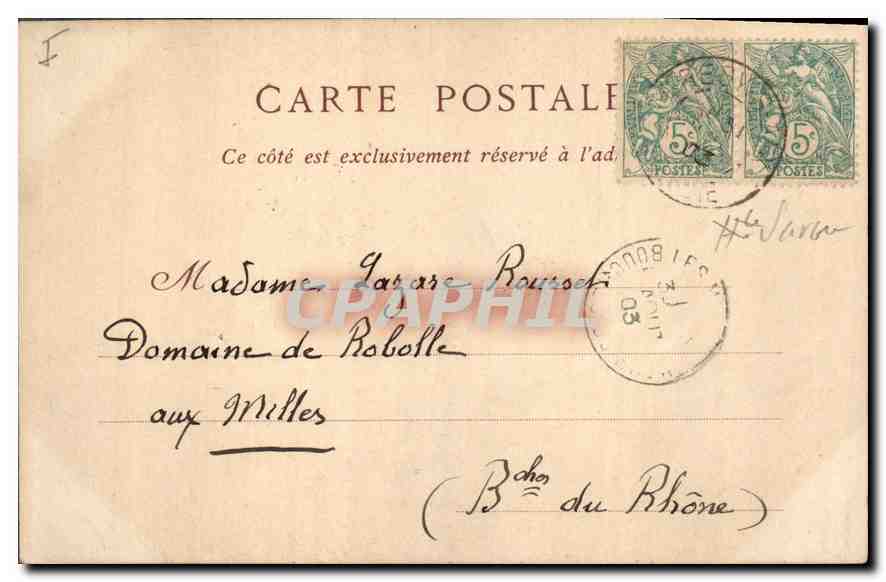 I
CARTE POSTALE
Ce côté est exclusivement réservé à l'ad
5c 5c
POSTES POSTES
Hte Savoie
LES M
31
AOUT
03
Madame Lazare Rousset
Domaine de Robolle
aux Milles
(Bches du Rhône)
CPAPHIL